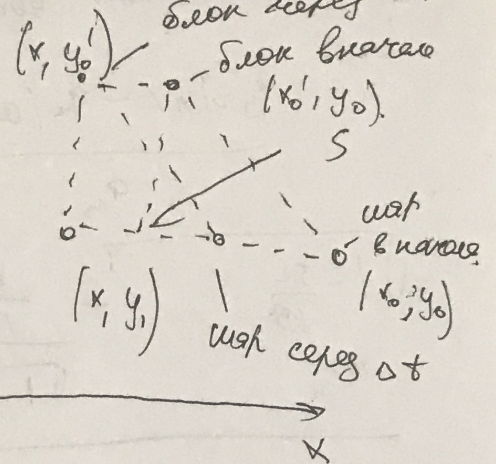 блок серез
(x, y₀')
блок вначале
(x₀', y₀).
S
шар
в начале
(x₀', y₀)
(x, y₁)
шар серез Δt
X